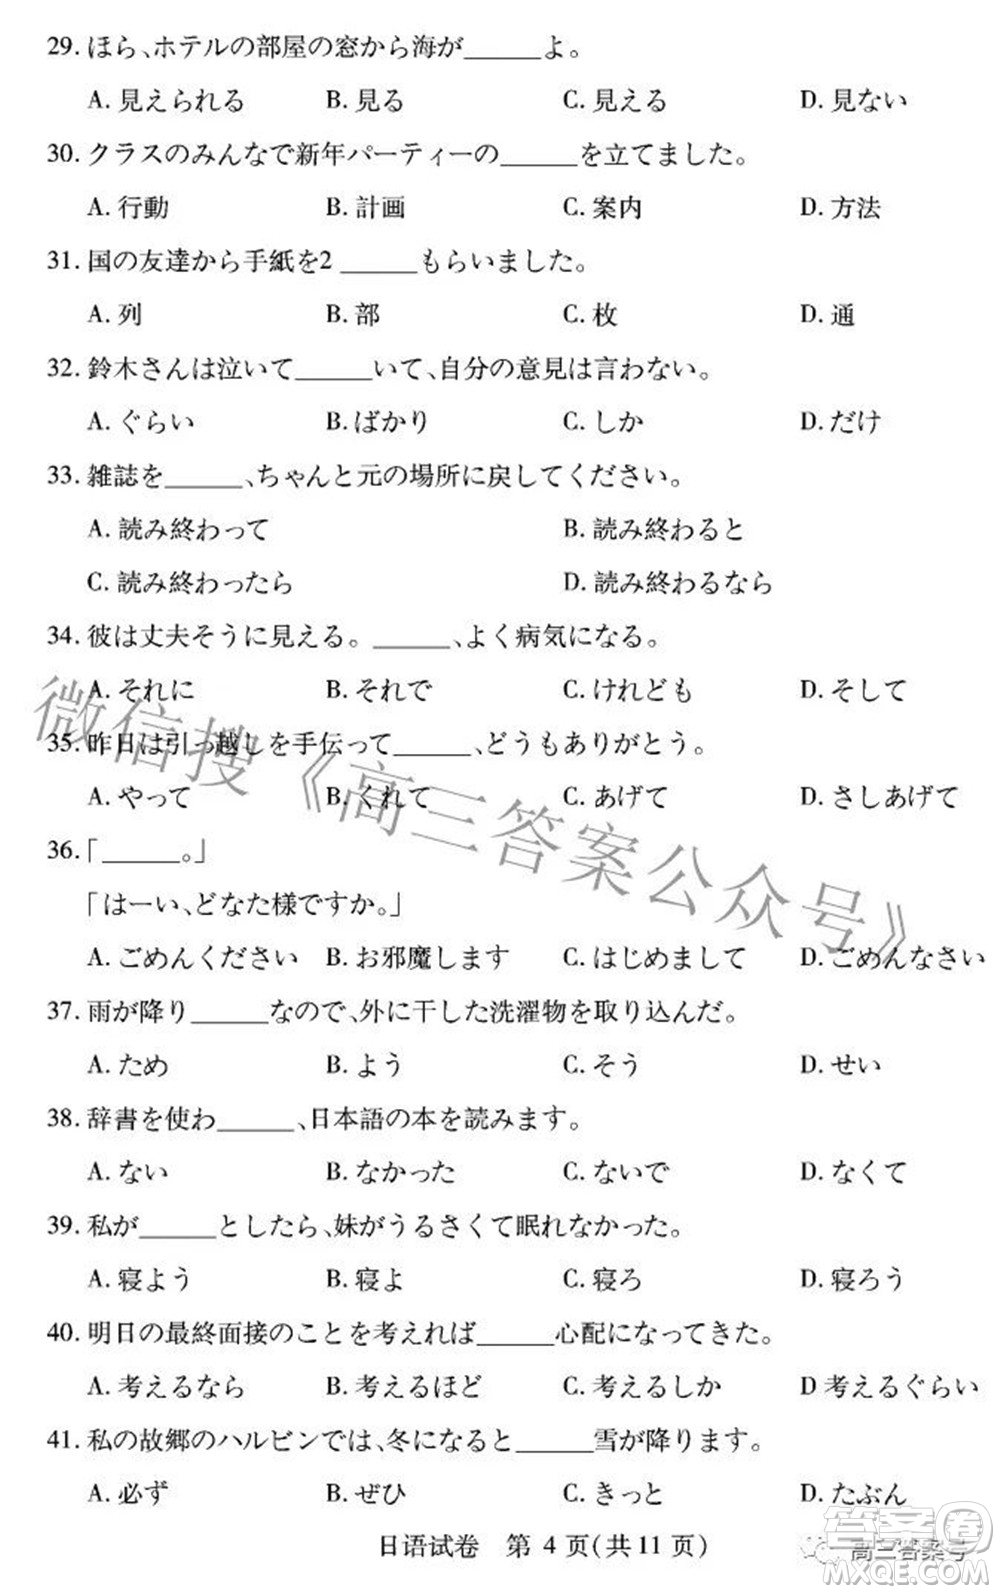 29. ほら、ホテルの部屋の窓から海が______よ。
A. 見えられる B. 見る C. 見える D. 見ない
30. クラスのみんなで新年パーティーの______を立てました。
A. 行動 B. 計画 C. 案内 D. 方法
31. 国の友達から手紙を2 ______もらいました。
A. 列 B. 部 C. 枚 D. 通
32. 鈴木さんは泣いて______いて、自分の意見は言わない。
A. ぐらい B. ばかり C. しか D. だけ
33. 雑誌を______、ちゃんと元の場所に戻してください。
A. 読み終わって B. 読み終わると
C. 読み終わったら D. 読み終わるなら
34. 彼は丈夫そうに見える。______、よく病気になる。
A. それに B. それで C. けれども D. そして
35. 昨日は引っ越しを手伝って______、どうもありがとう。
A. やって B. くれて C. あげて D. さしあげて
36. 「______。」
「はーい、どなた様ですか。」
A. ごめんください B. お邪魔します C. はじめまして D. ごめんなさい
37. 雨が降り______なので、外に干した洗濯物を取り込んだ。
A. ため B. よう C. そう D. せい
38. 辞書を使わ______、日本語の本を読みます。
A. ない B. なかった C. ないで D. なくて
39. 私が______としたら、妹がうるさくて眠れなかった。
A. 寝よう B. 寝よ C. 寝ろ D. 寝ろう
40. 明日の最終面接のことを考えれば______心配になってきた。
A. 考えるなら B. 考えるほど C. 考えるしか D 考えるぐらい
41. 私の故郷のハルビンでは、冬になると______雪が降ります。
A. 必ず B. ぜひ C. きっと D. たぶん
日语试卷 第 4 页(共 11 页)
微信搜《高三答案公众号》
高三答案号
答案圈
MXQE.COM